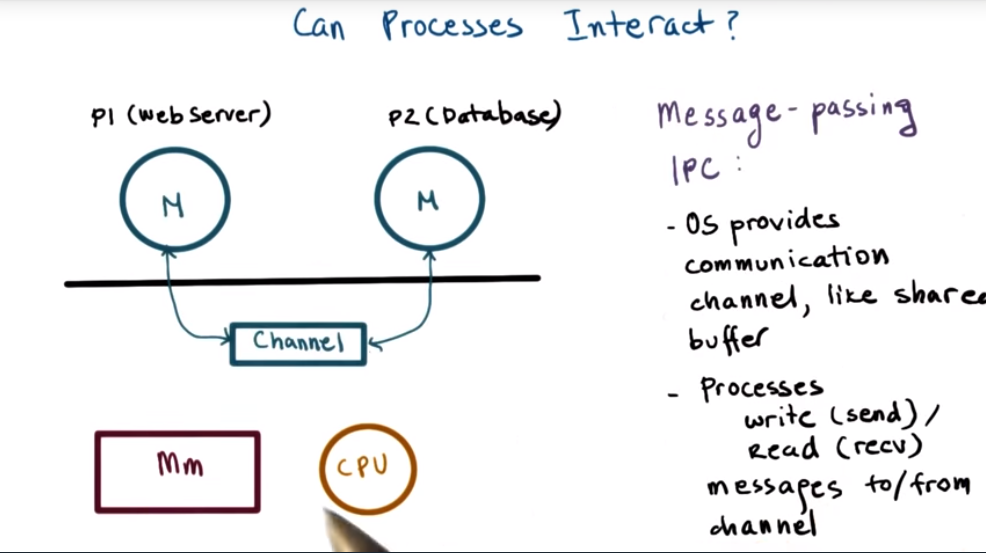 Can Processes Interact?
P1 (web server)
P2 (Database)
M
M
Channel
Mm
CPU
Message-passing
IPC:
- OS provides
communication
channel, like shared
buffer
- Processes
write (send) /
Read (recv)
messages to/from
channel